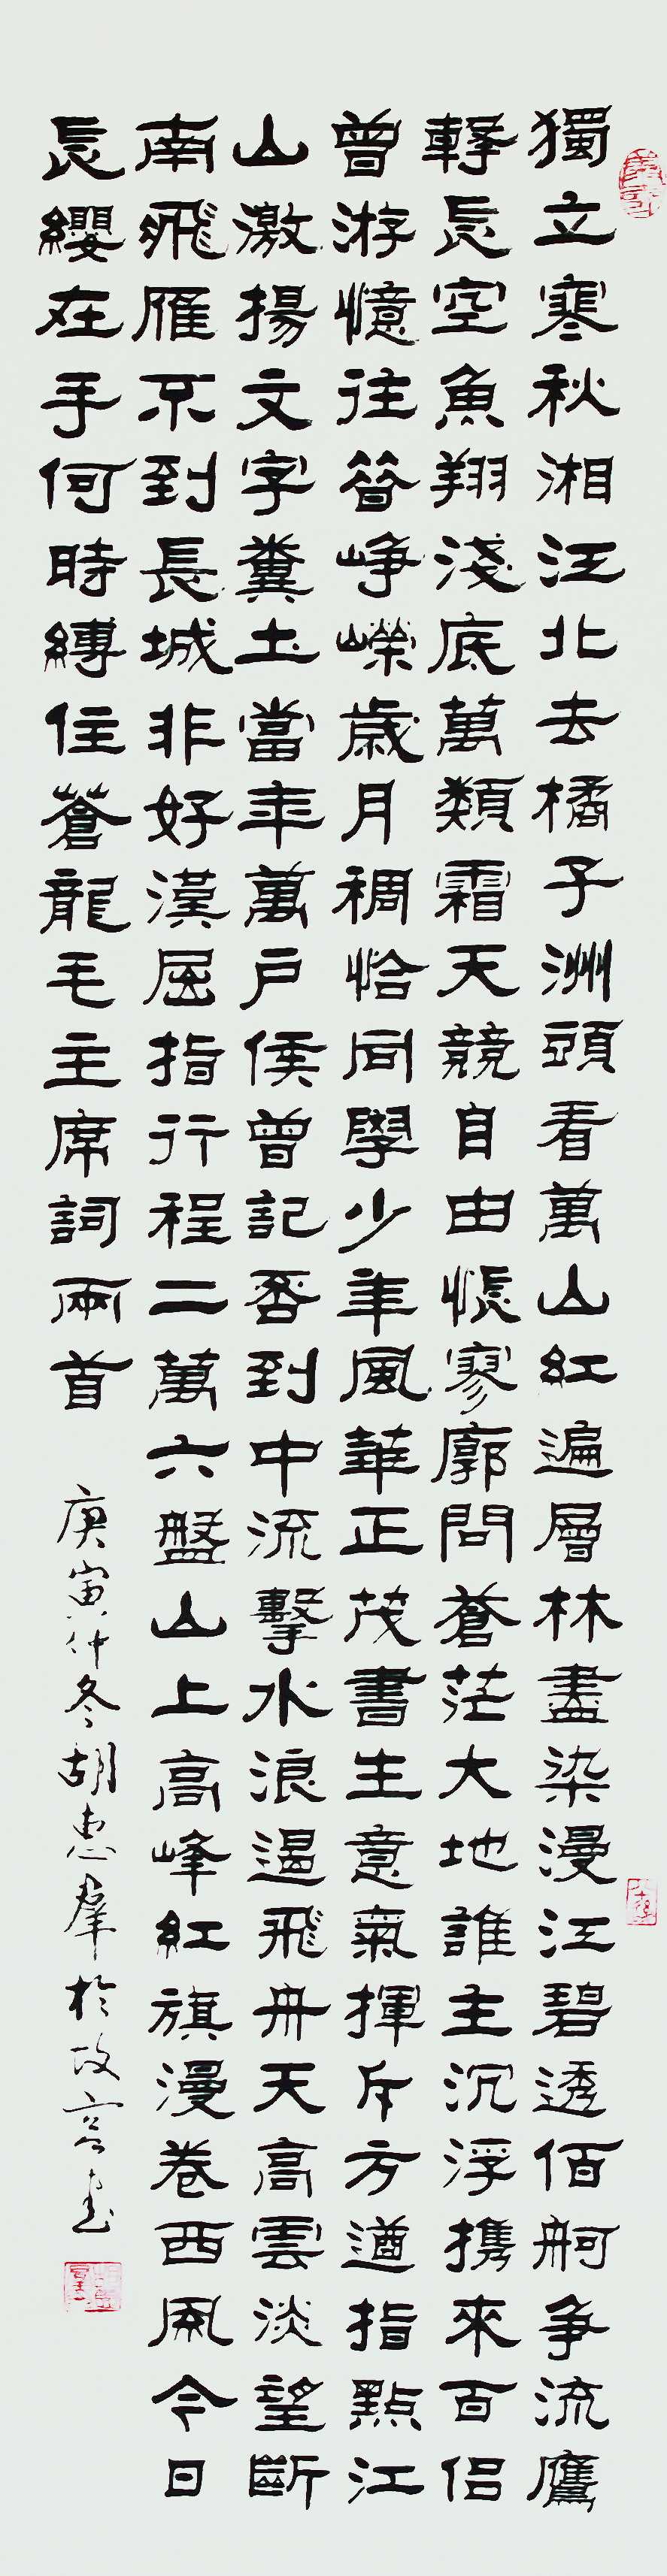 獨立寒秋湘江北去橘子洲頭看萬山紅遍層林盡染漫江碧透佰舸争流鷹
擊長空魚翔淺底萬類霜天競自由悵寥廓問蒼茫大地誰主沉浮携來百侣
曾游憶往昔崢嶸歲月稠恰同學少年風華正茂書生意氣揮斥方遒指點江
山激揚文字糞土當年萬戶侯曾記否到中流擊水浪遏飛舟天高雲淡望斷
南飛雁不到長城非好漢屈指行程二萬六盤山上高峰紅旗漫卷西風今日
長纓在手何時縛住蒼龍毛主席詞兩首
庚寅仲冬胡惠羣於書